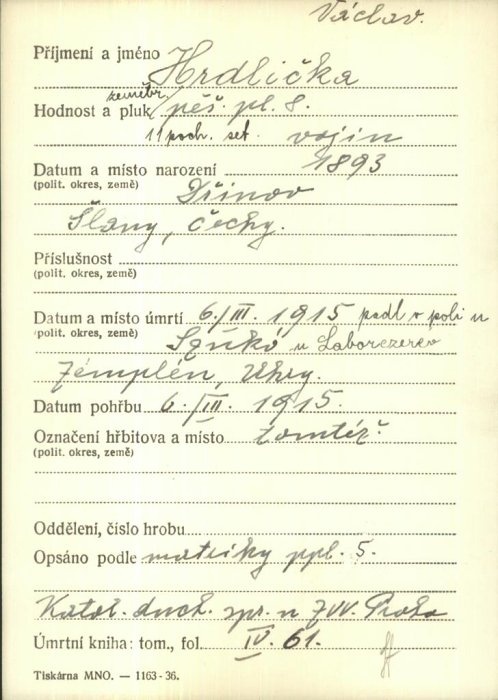 Václav.
Příjmení a jméno Hrdlička
zeměbr.
Hodnost a pluk pěš. pl. 8.
11 poch. set. vojín
Datum a místo narození 1893
(polit. okres, země) Dřínov
Slaný, Čechy.
Příslušnost
(polit. okres, země)
Datum a místo úmrtí 6./III. 1915 padl v poli u
(polit. okres, země) Szukó u Laborczerev
Zemplén, Uhry.
Datum pohřbu 6./III. 1915.
Označení hřbitova a místo tomtéž.
(polit. okres, země)
Oddělení, číslo hrobu
Opsáno podle matriky ppl. 5.
Katol. duch. spr. u ZVV. Praha
Úmrtní kniha: tom., fol. IV. 61.
Tiskárna MNO. — 1163-36.